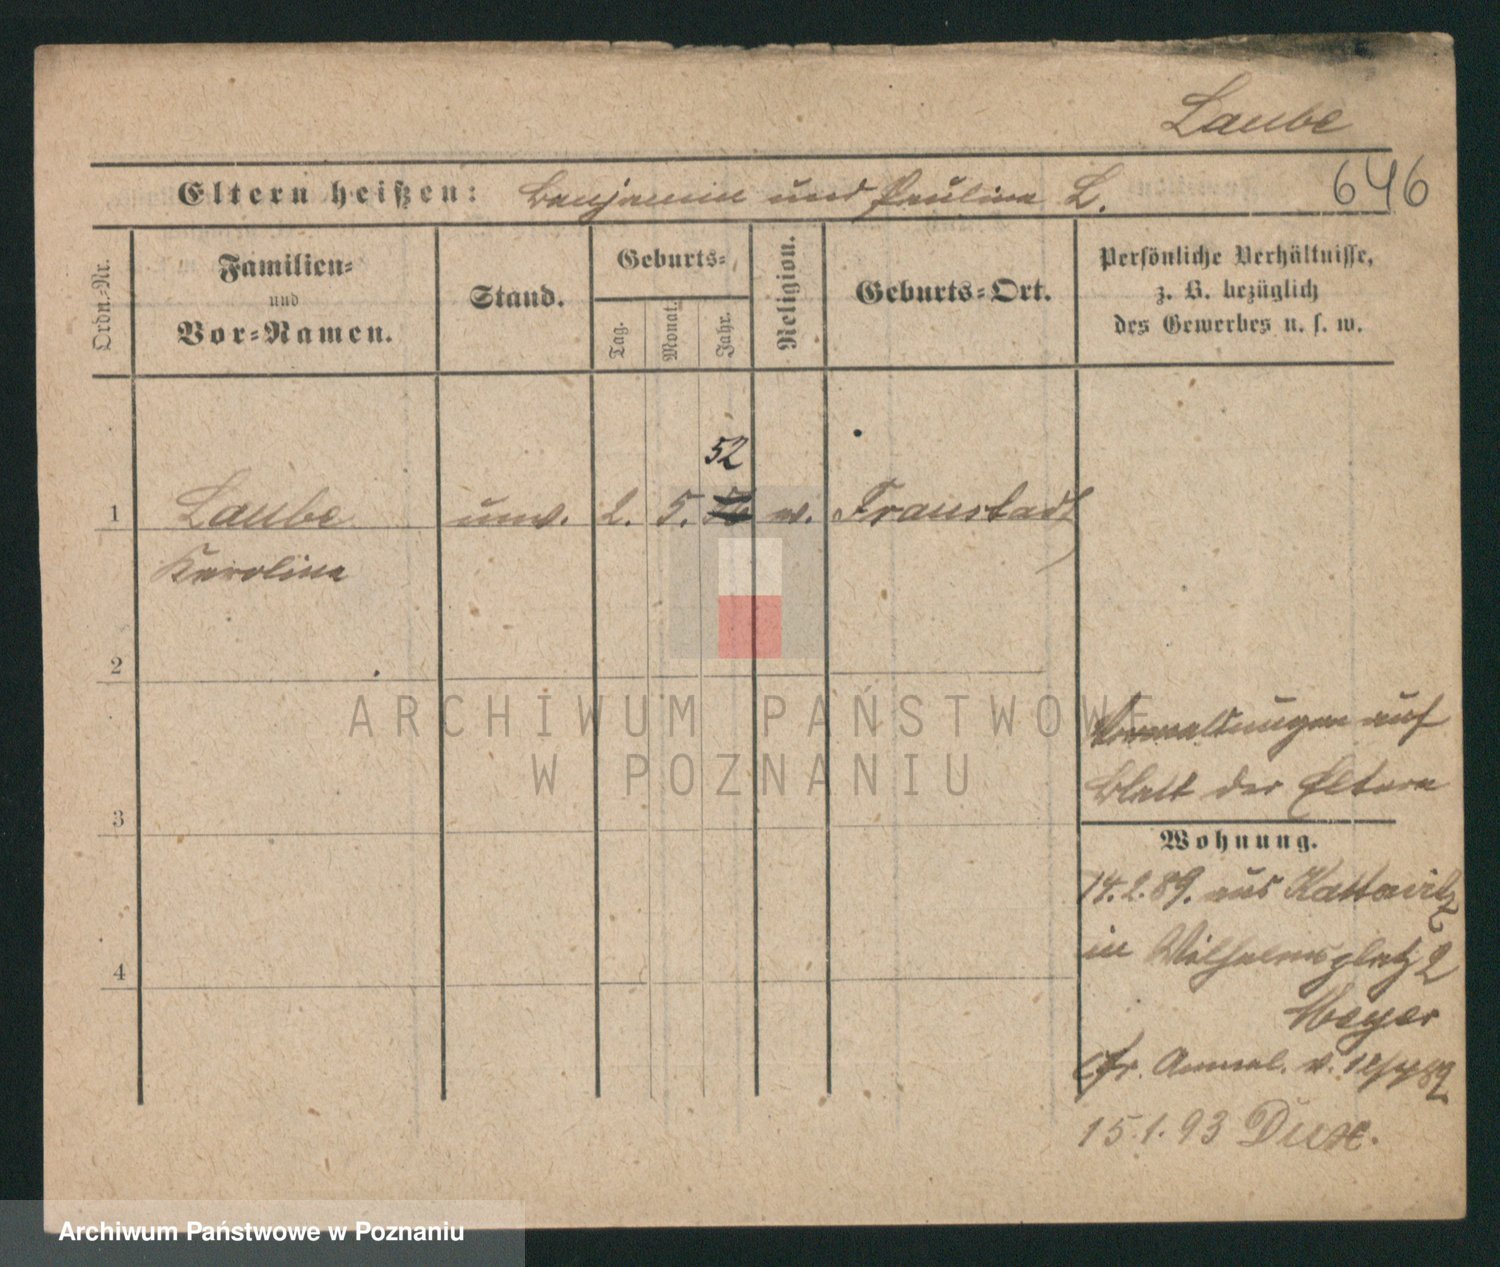 Laube
646
Eltern heißen: Benjamin und Pauline L.
Ordn.-Nr.
Familien-
und
Vor-Namen.
Stand.
Geburts-
Tag.
Monat.
Jahr.
Religion.
Geburts-Ort.
Persönliche Verhältnisse,
z. B. bezüglich
des Gewerbes u. s. w.
52
1 Laube unv. 2. 5. ev. Fraustadt
Karoline
2
3
4
auf
Blatt der Eltern
Wohnung.
14.2.89. aus Kattowitz
in Wilhelmsplatz 2
Meyer
15.1.93
ARCHIWUM PAŃSTWOWE
W POZNANIU
Archiwum Państwowe w Poznaniu